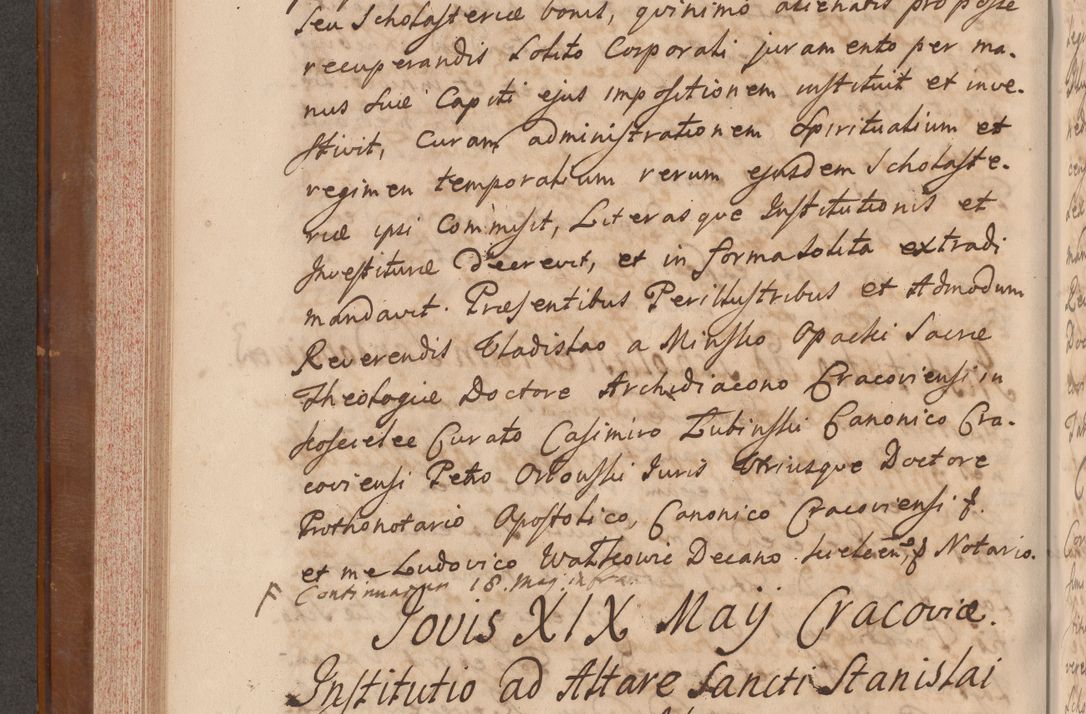 seu Scholasteriæ bonis, quinimo alienatis pro posse
recuperandis solito Corporali juramento per ma-
nus suæ Capiti ejus impositionem instituit et inve-
stivit, Curam administrationem spiritualium et
regimen temporalium rerum ejusdem Scholaste-
riæ ipsi Commisit, Literasque Institutionis et
Investituræ decrevit, et in forma solita extradi
mandavit. Præsentibus Perillustribus et Admodum
Reverendis Vladislao a Minsko Opacki Sacræ
Theologiæ Doctore Archidiacono Cracoviensi in
Curato Casimiro Lubinski Canonico Cra-
coviensi Petro Orlouski Juris Utriusque Doctore
Prothonotario Apostolico, Canonico Cracoviensi
et me Ludovico Decano Notario.
F Continuatur 18 Maij infra
Jovis XIX Maij Cracoviæ.
Institutio ad Altare Sancti Stanislai